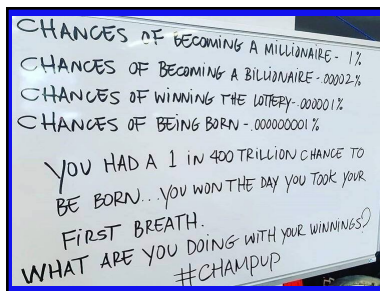 CHANCES OF BECOMING A MILLIONAIRE - 1%
CHANCES OF BECOMING A BILLIONAIRE - .00002%
CHANCES OF WINNING THE LOTTERY - .000001%
CHANCES OF BEING BORN - .000000001%
YOU HAD A 1 IN 400 TRILLION CHANCE TO
BE BORN... YOU WON THE DAY YOU TOOK YOUR
FIRST BREATH.
WHAT ARE YOU DOING WITH YOUR WINNINGS?
#CHAMPUP